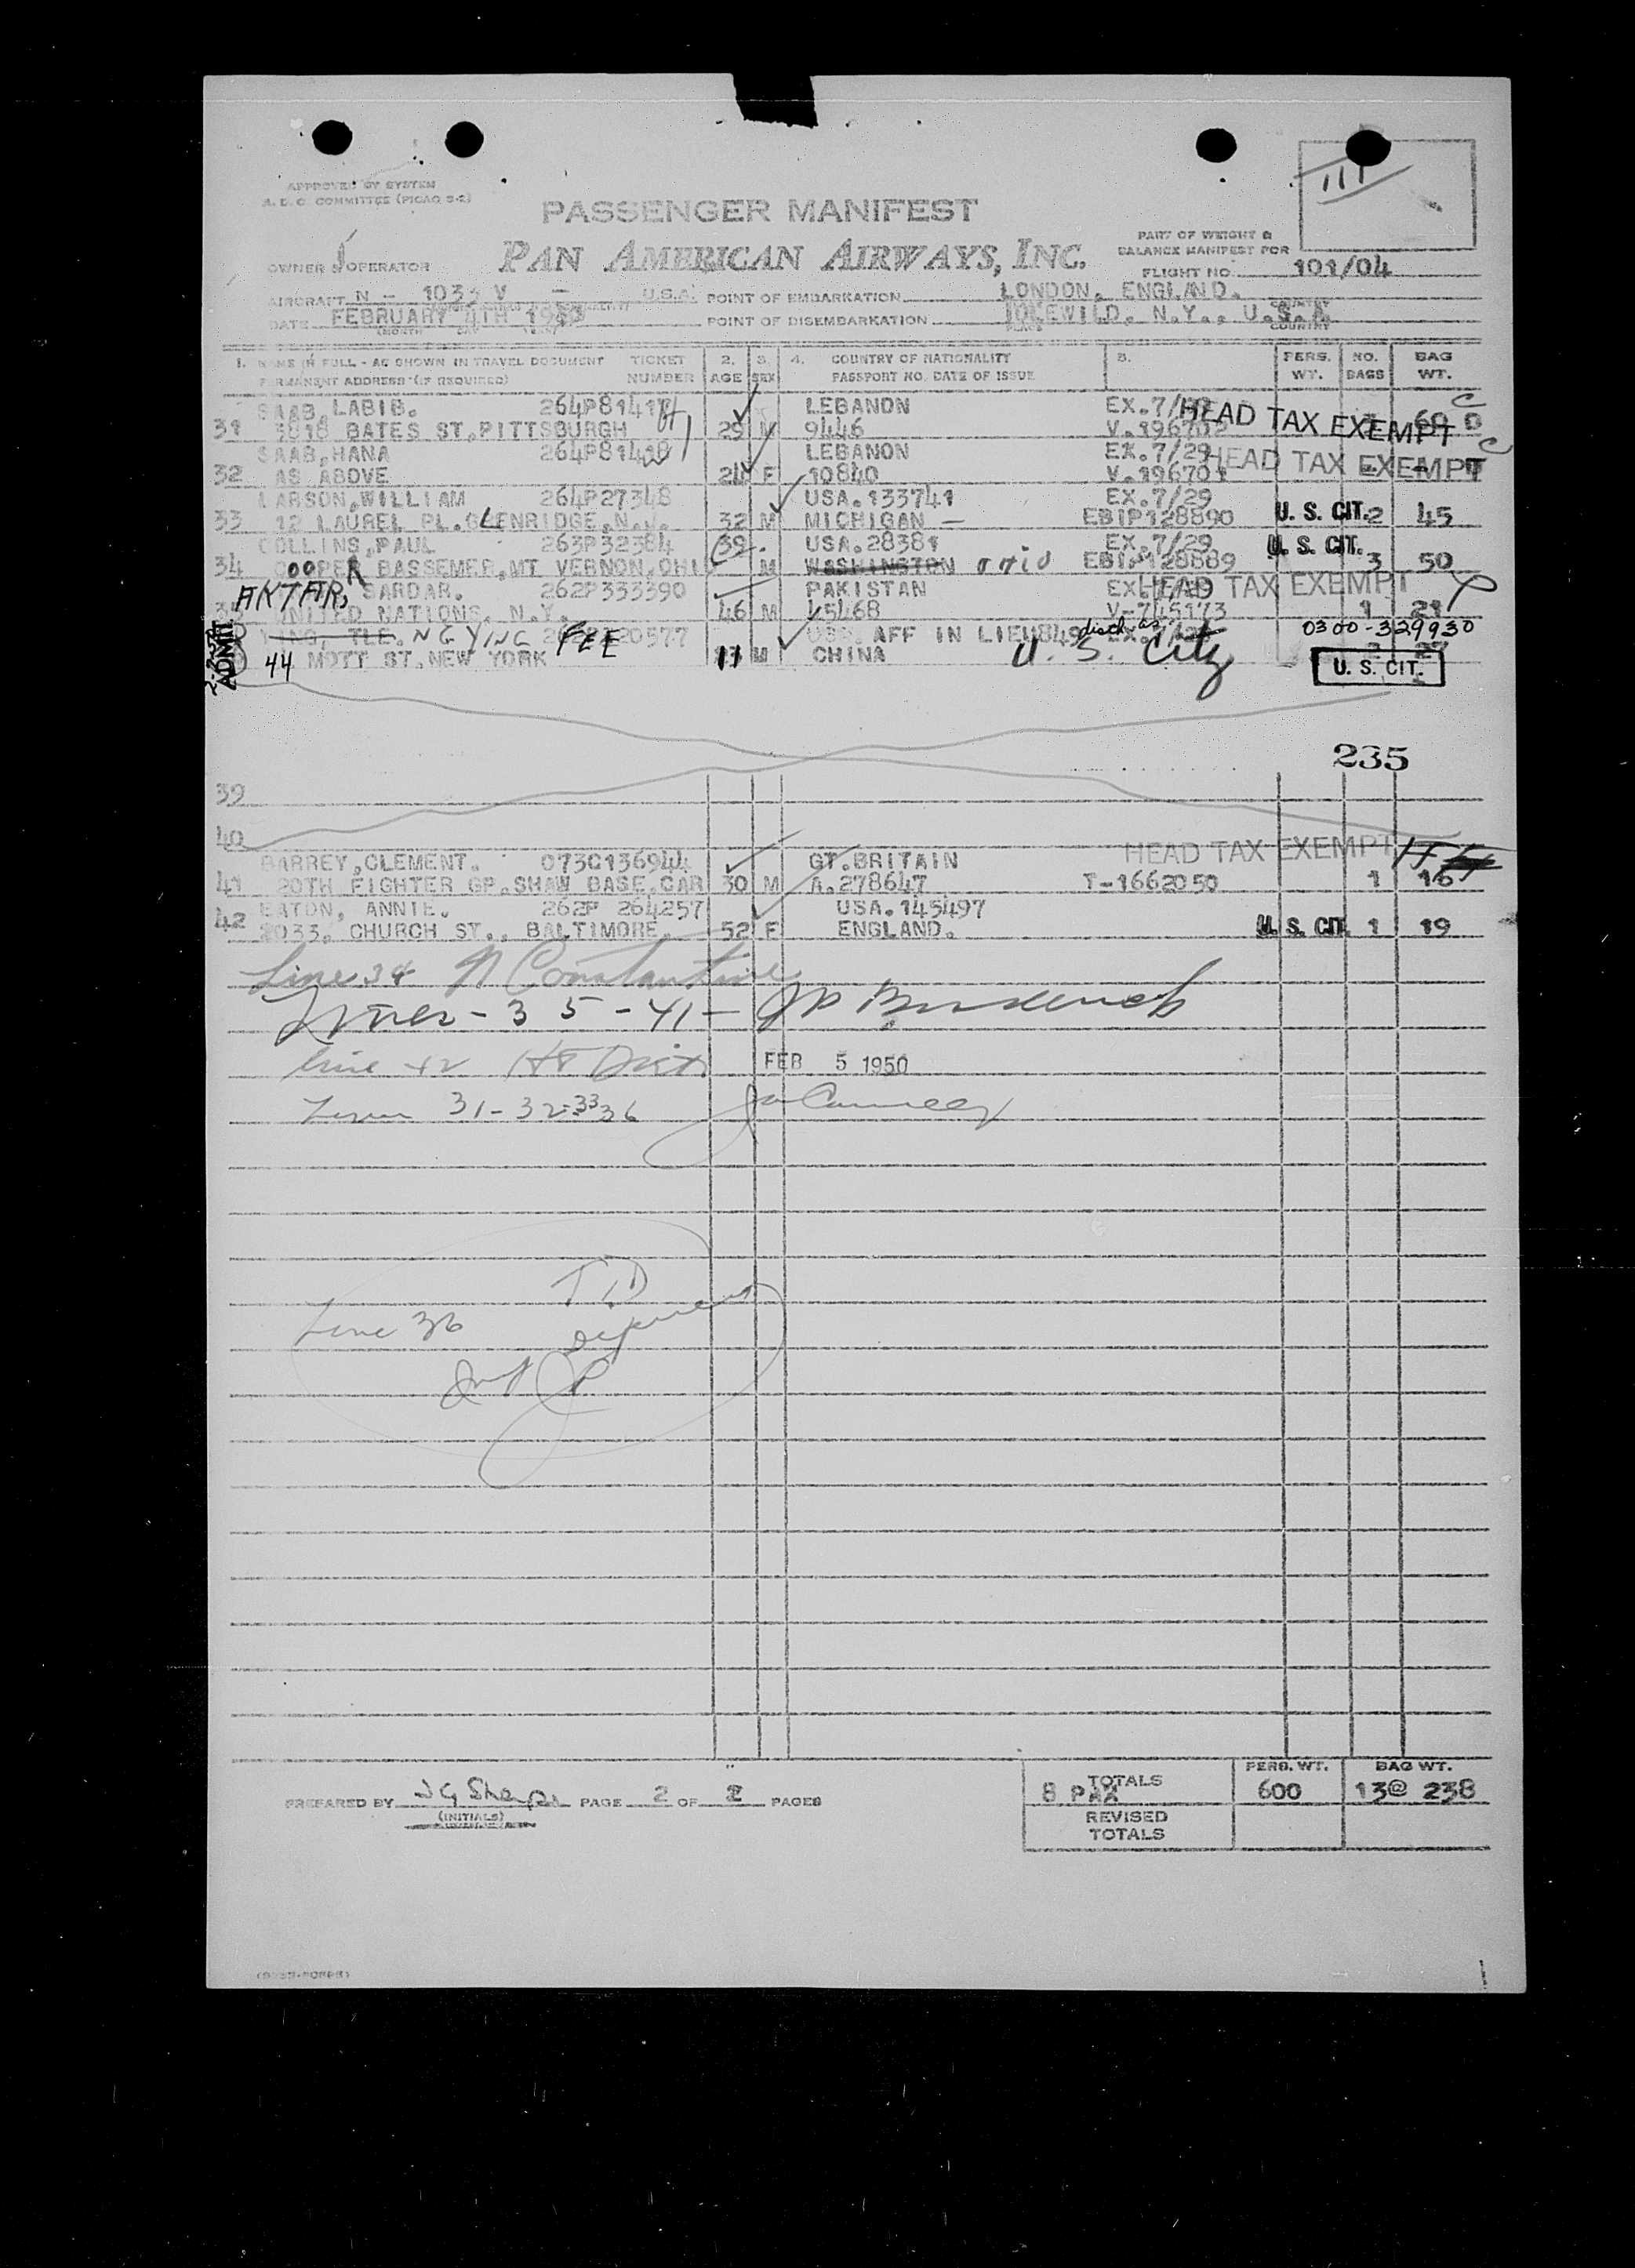 111
APPROVED BY SYSTEM
A. D. C. COMMITTEE (PICAO 2-2)
PASSENGER MANIFEST
PAN AMERICAN AIRWAYS, INC.
PART OF WEIGHT &
BALANCE MANIFEST FOR
OWNER & OPERATOR
FLIGHT NO. 101/04
AIRCRAFT N - 103 V - U.S.A. POINT OF EMBARKATION LONDON, ENGLAND.
DATE FEBRUARY 4TH 1950 POINT OF DISEMBARKATION IDLEWILD, N.Y., U.S.A.
COUNTRY
1. NAME IN FULL - AS SHOWN IN TRAVEL DOCUMENT TICKET 2. 3. 4. COUNTRY OF NATIONALITY 5. PERS. NO. BAG
PERMANENT ADDRESS (IF REQUIRED) NUMBER AGE SEX PASSPORT NO. DATE OF ISSUE WT. BAGS WT.
SAAB, LABIB. LEBANON EX.7/29 HEAD TAX EXEMPT C
31 3818 BATES ST, PITTSBURGH 29 M 9446 60
SAAB, HANA LEBANON EX.7/29 HEAD TAX EXEMPT C
32 AS ABOVE 24 F 10840 V.196701
LARSON, WILLIAM 264P27348 USA.133741 EX.7/29
33 12 LAUREL PL. GLENRIDGE, N.J. 32 M MICHIGAN - EBIP128890 U. S. CIT. 2 45
COLLINS, PAUL 263P32384 39. USA.28381 EX.7/29 U. S. CIT.
34 COOPER BASSEMER, MT VERNON, OHIO M WASHINGTON EBIP128889 3 50
AKTAR, SARDAR. 262P333390 PAKISTAN HEAD TAX EXEMPT
UNITED NATIONS, N.Y. 46 M 45468 V-745173 1 21
NG YING FEE AFF IN LIEU disch as 0300-329930
ADMIT 44 MOTT ST, NEW YORK 11 M CHINA U. S. City U. S. CIT.
235
39
40
BARREY, CLEMENT. 073C136944 GT.BRITAIN HEAD TAX EXEMPT
41 20TH FIGHTER GP. SHAW BASE, CAR 30 M A.278647 T-1662050 1 16
EATON, ANNIE. 262P 264257 USA.145497
42 2033, CHURCH ST., BALTIMORE. 52 F ENGLAND. U. S. CIT. 1 19
Line 34 N Constantine
Lines - 35 - 41 -
Line 42 FEB 5 1950
Lines 31-32-33 36
Line 36 T.D
PREPARED BY PAGE 2 OF 2 PAGES
(INITIALS)
TOTALS PERS. WT. BAG WT.
8 PAX 600 13@ 238
REVISED
TOTALS